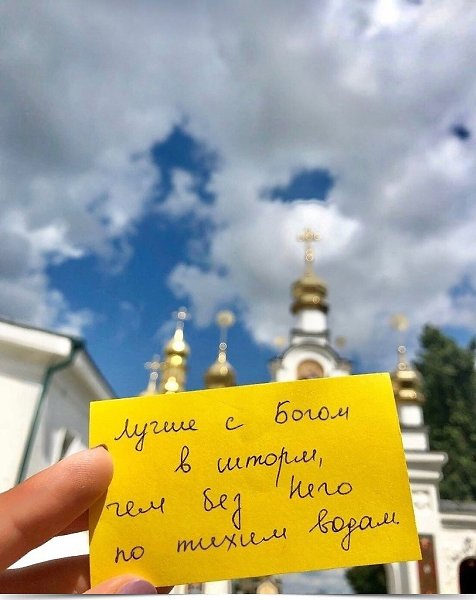 Лучше с Богом
в шторм,
чем без Него
по тихим водам.